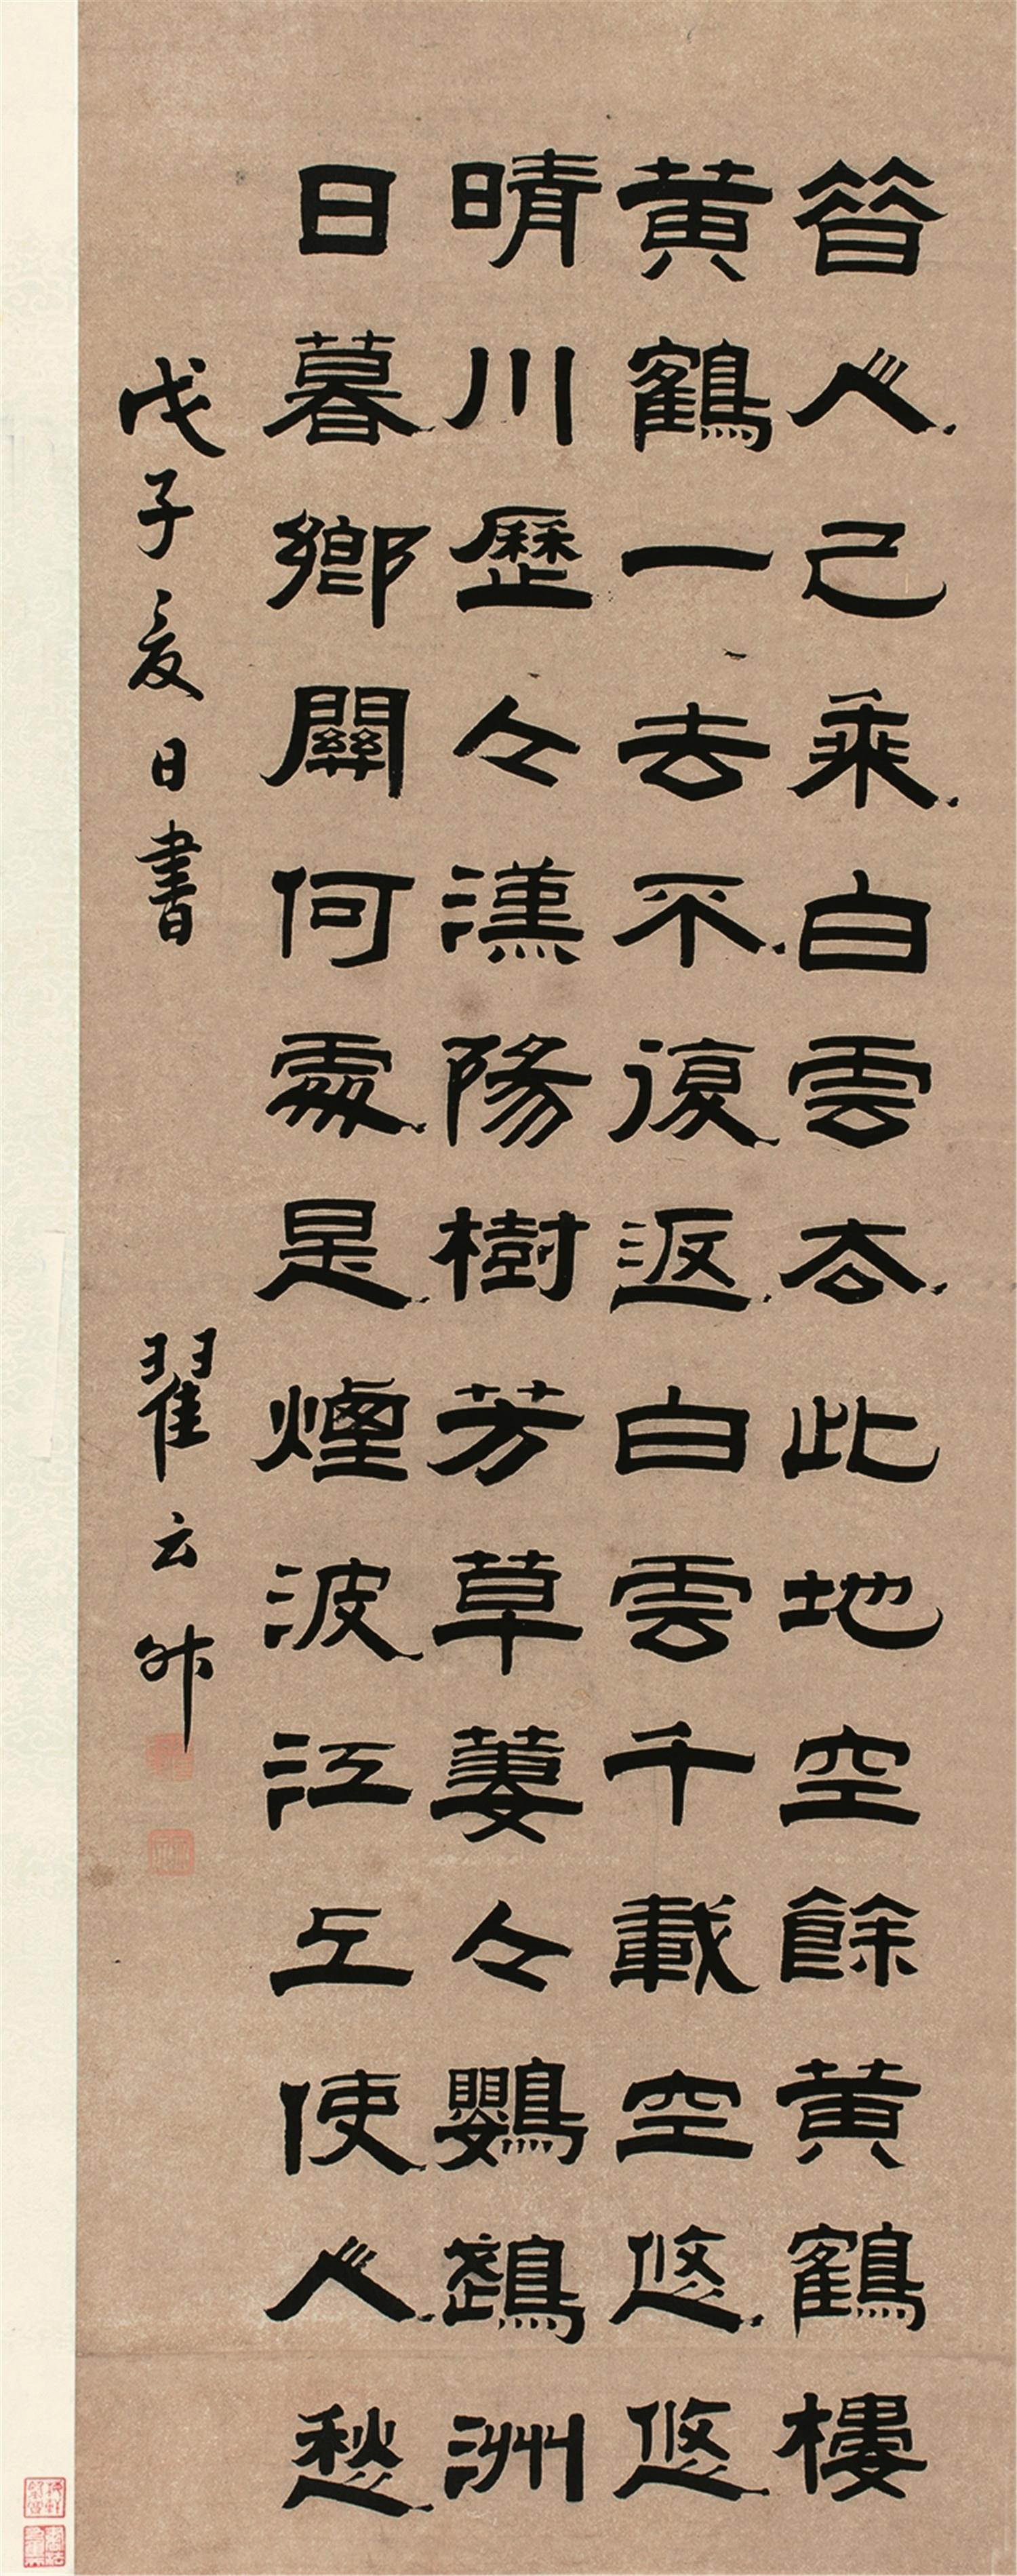 昝人已乗白雲厺此地空餘黄鶴樓
黄鶴一去不復返白雲千載空悠悠
晴川歷々漢陽樹芳草萋々鸚鵡洲
日暮鄉關何處是煙波江上使人愁
戊子夏日書
翟云升